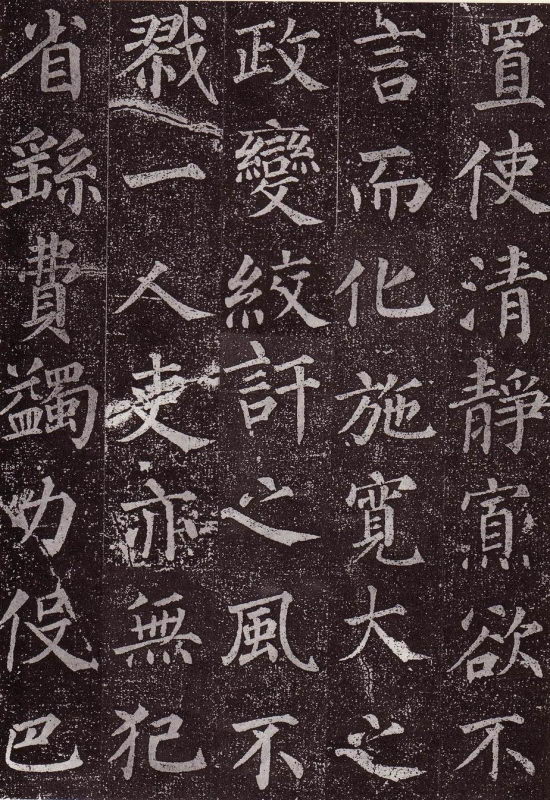 置使清靜寡欲不
言而化施寬大之
政變絞訐之風不
戮一人吏亦無犯
省繇費蠲功伇巴